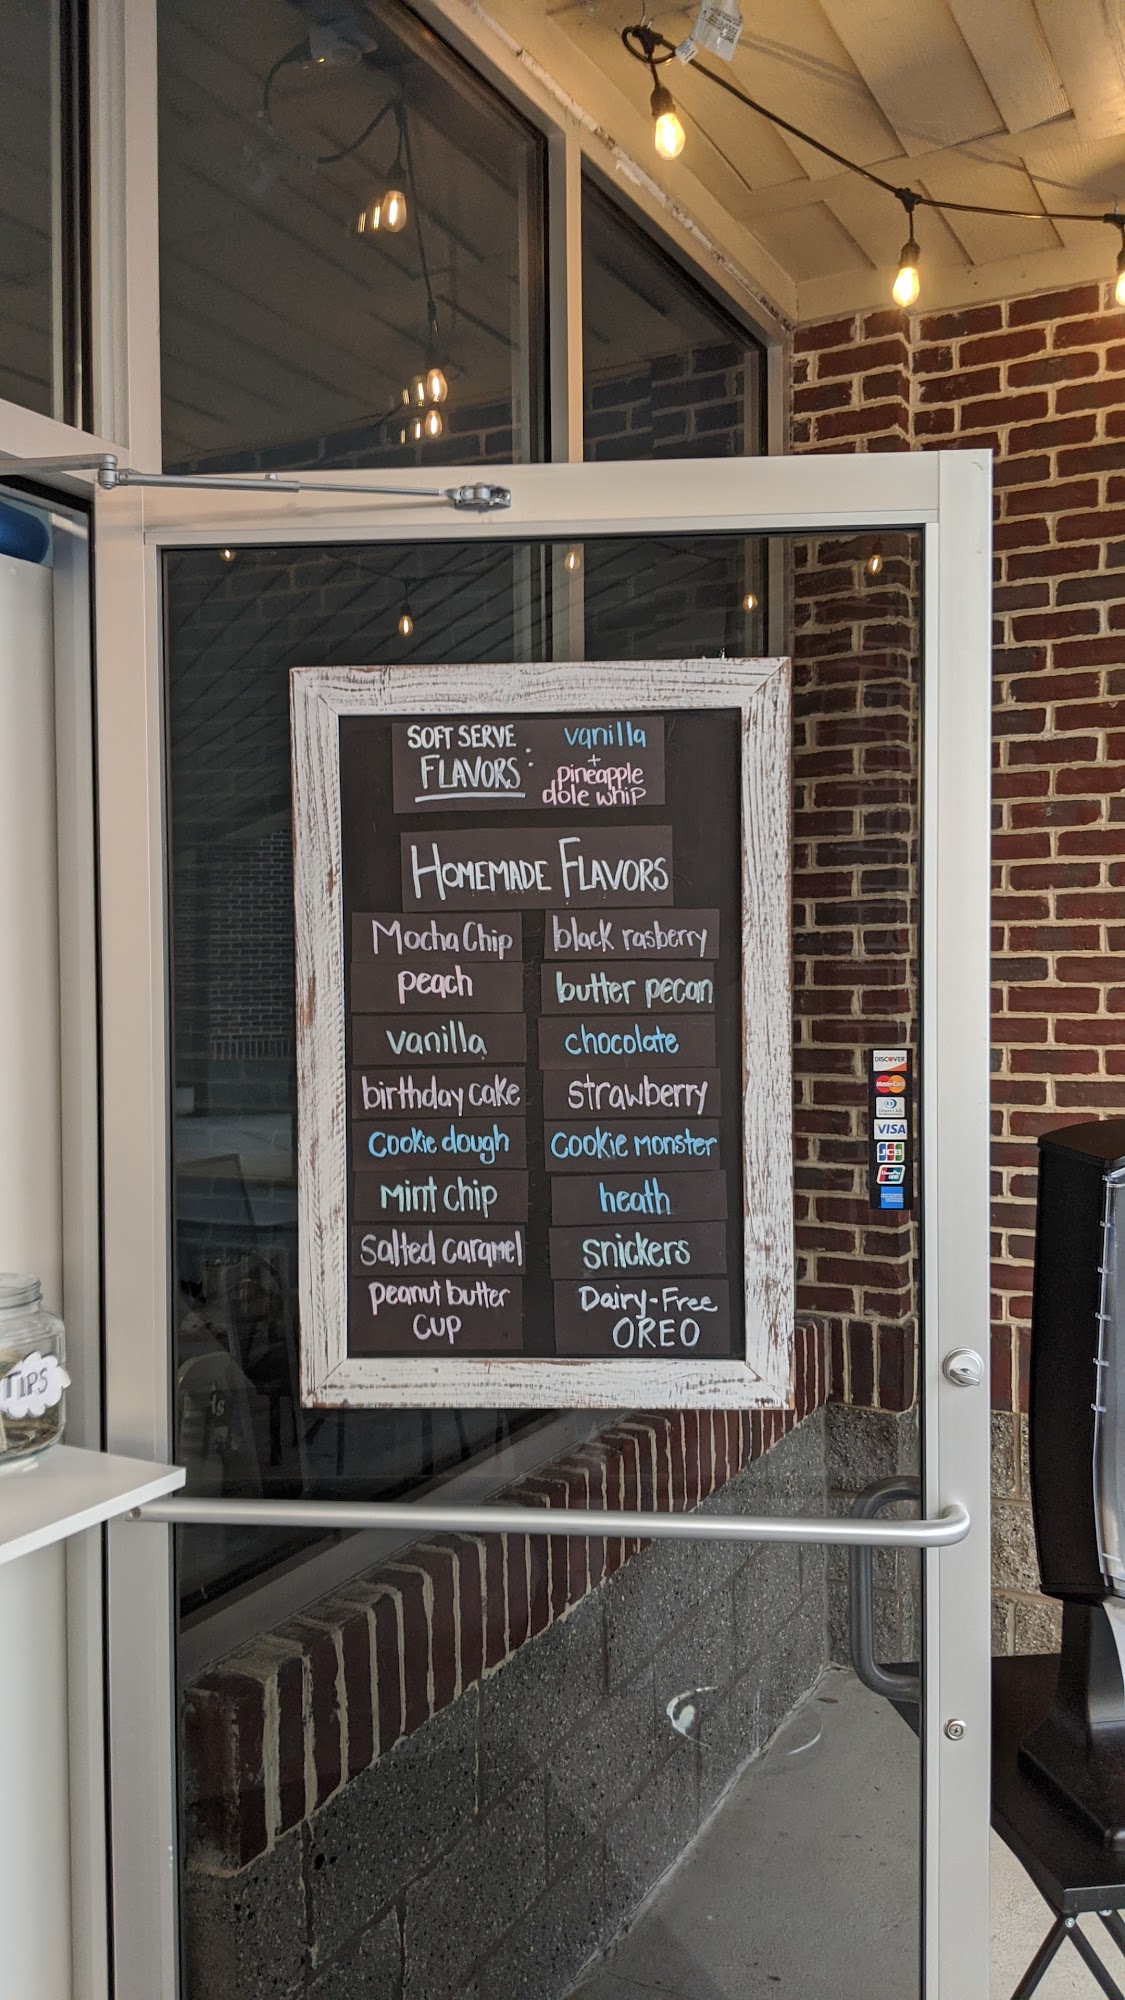 SOFT SERVE FLAVORS :
vanilla
+
pineapple
dole whip
HOMEMADE FLAVORS
Mocha Chip
black rasberry
peach
butter pecan
vanilla
chocolate
birthday cake
strawberry
cookie dough
cookie monster
mint chip
heath
salted caramel
snickers
peanut butter
cup
Dairy-Free
OREO
DISCOVER
MasterCard
VISA
JCB
TIPS